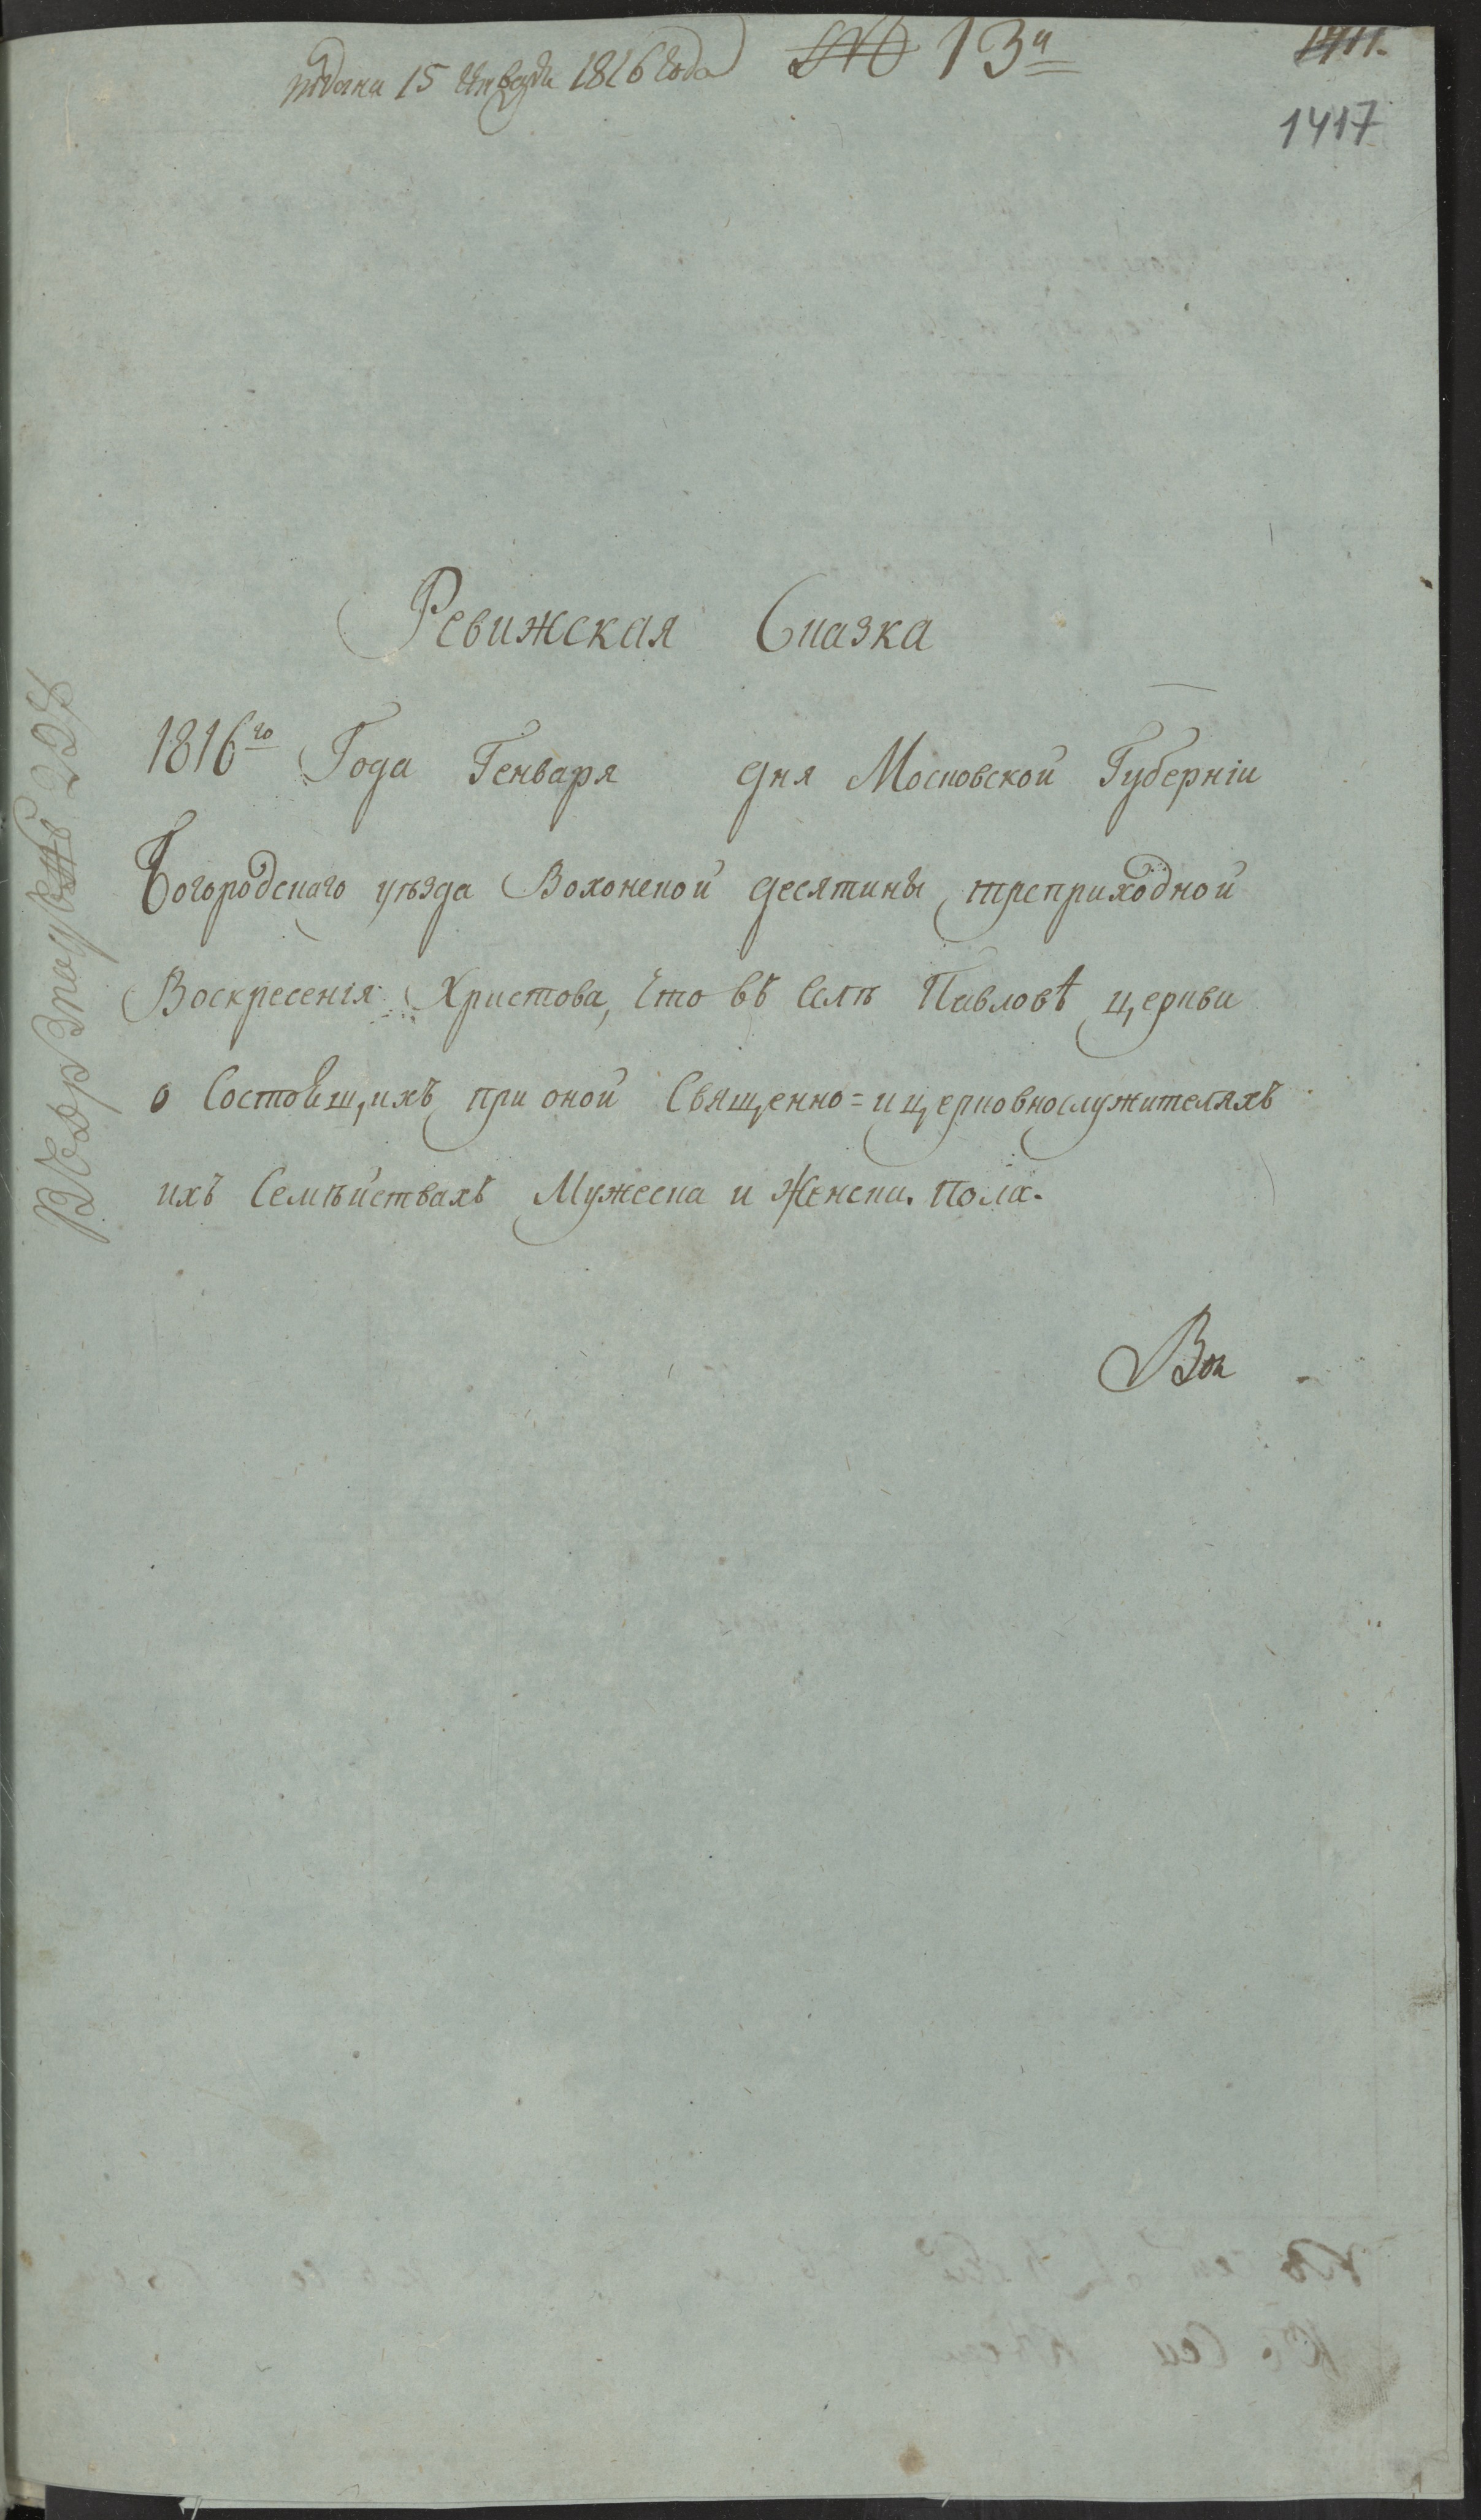 подана 15 Января 1816 года № 13й
1411.
1417
Ревижская Сказка
1816го Года Генваря дня Московской Губернiи
Богородскаго уѣзда Вохонской десятины треприходной
Воскресенiя Христова, что въ Селѣ Павловѣ церкви
о Состоящихъ при оной Священно= и церковнослужителяхъ
ихъ Семѣйствахъ Мужеска и Женска. Пола.